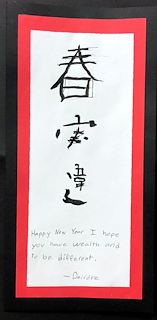 春
Happy New Year I hope
you have wealth and
to be different.
— Deirdre